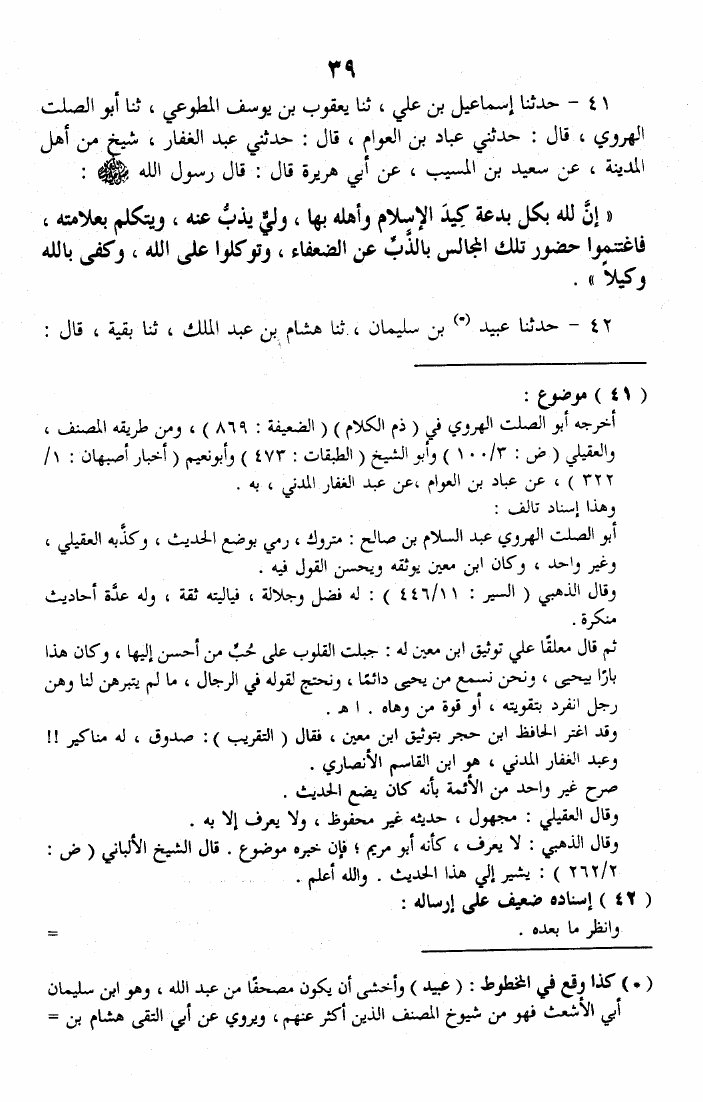 ٣٩
٤١ - حدثنا إسماعيل بن علي ، ثنا يعقوب بن يوسف المطوعي ، ثنا أبو الصلت
الهروي ، قال : حدثني عباد بن العوام ، قال : حدثني عبد الغفار ، شيخ من أهل
المدينة ، عن سعيد بن المسيب ، عن أبي هريرة قال : قال رسول الله ﷺ :
« إنَّ لله بكل بدعة كِيدَ الإسلام وأهله بها ، وليٌّ يذبُّ عنه ، ويتكلم بعلامته ،
فاغتنموا حضور تلك المجالس بالذَّبِّ عن الضعفاء ، وتوكلوا على الله ، وكفى بالله
وكيلاً » .
٤٢ - حدثنا عبيد (*) بن سليمان ، ثنا هشام بن عبد الملك ، ثنا بقية ، قال :
( ٤١ ) موضوع :
أخرجه أبو الصلت الهروي في ( ذم الكلام ) ( الضعيفة : ٨٦٩ ) ، ومن طريقه المصنف ،
والعقيلي ( ض : ١٠٠/٣ ) وأبو الشيخ ( الطبقات : ٤٧٣ ) وأبونعيم ( أخبار أصبهان : ١/
٣٢٢ ) ، عن عباد بن العوام ،عن عبد الغفار المدني ، به .
وهذا إسناد تالف :
أبو الصلت الهروي عبد السلام بن صالح : متروك ، رمي بوضع الحديث ، وكذَّبه العقيلي ،
وغير واحد ، وكان ابن معين يوثقه ويحسن القول فيه .
وقال الذهبي ( السير : ٤٤٦/١١ ) : له فضل وجلالة ، فياليته ثقة ، وله عدَّة أحاديث
منكرة .
ثم قال معلقًا علي توثيق ابن معين له : جبلت القلوب على حُبِّ من أحسن إليها ، وكان هذا
بارًا بيحيى ، ونحن نسمع من يحيى دائمًا ، ونحتج لقوله في الرجال ، ما لم يتبرهن لنا وهن
رجل انفرد بتقويته ، أو قوة من وهاه . ا هـ .
وقد اغتر الحافظ ابن حجر بتوثيق ابن معين ، فقال ( التقريب ) : صدوق ، له مناكير !!
وعبد الغفار المدني ، هو ابن القاسم الأنصاري .
صرح غير واحد من الأئمة بأنه كان يضع الحديث .
وقال العقيلي : مجهول ، حديثه غير محفوظ ، ولا يعرف إلا به .
وقال الذهبي : لا يعرف ، كأنه أبو مريم ؛ فإن خبره موضوع . قال الشيخ الألباني ( ض :
٢٦٢/٢ ) : يشير إلي هذا الحديث . والله أعلم .
( ٤٢ ) إسناده ضعيف على إرساله :
وانظر ما بعده . =
(*) كذا وقع في المخطوط : ( عبيد ) وأخشى أن يكون مصحفًا من عبد الله ، وهو ابن سليمان
أبي الأشعث فهو من شيوخ المصنف الذين أكثر عنهم ، ويروي عن أبي التقى هشام بن =